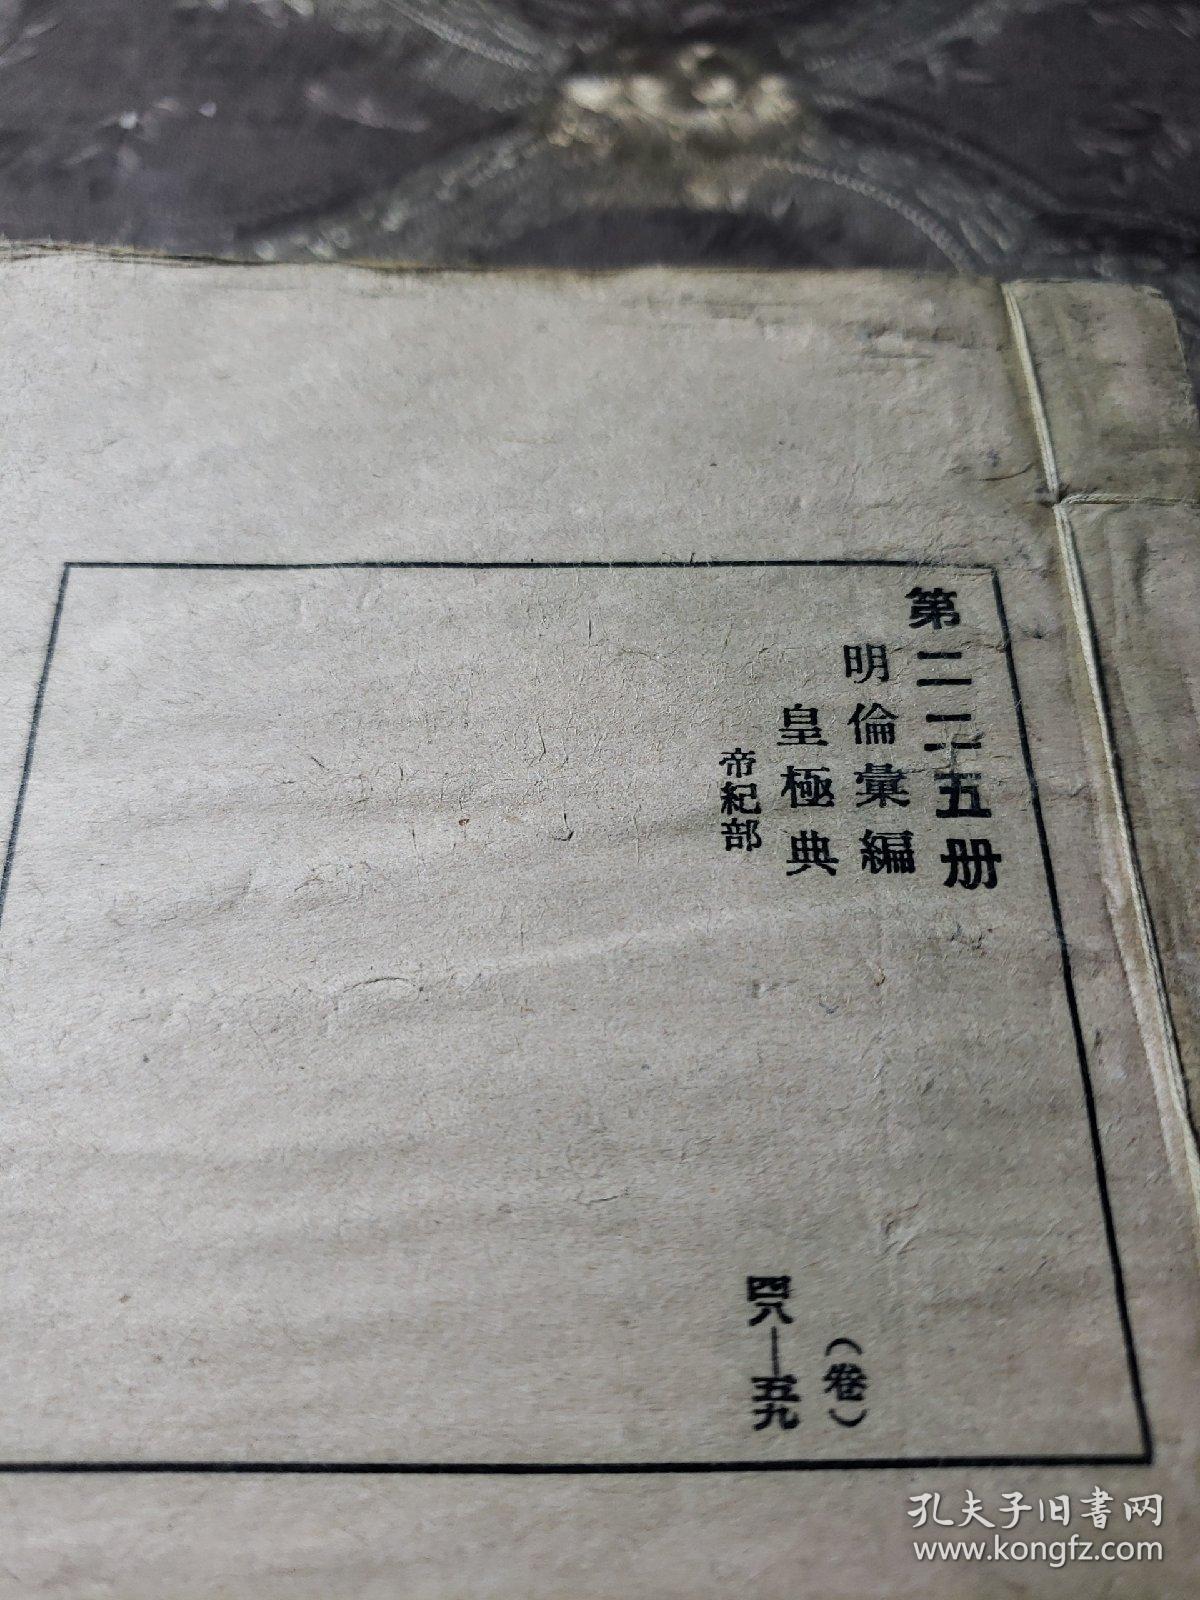 第二二五册
明倫彙編
皇極典
帝紀部
（卷）
四八—五九
孔夫子旧書网
www.kongfz.com